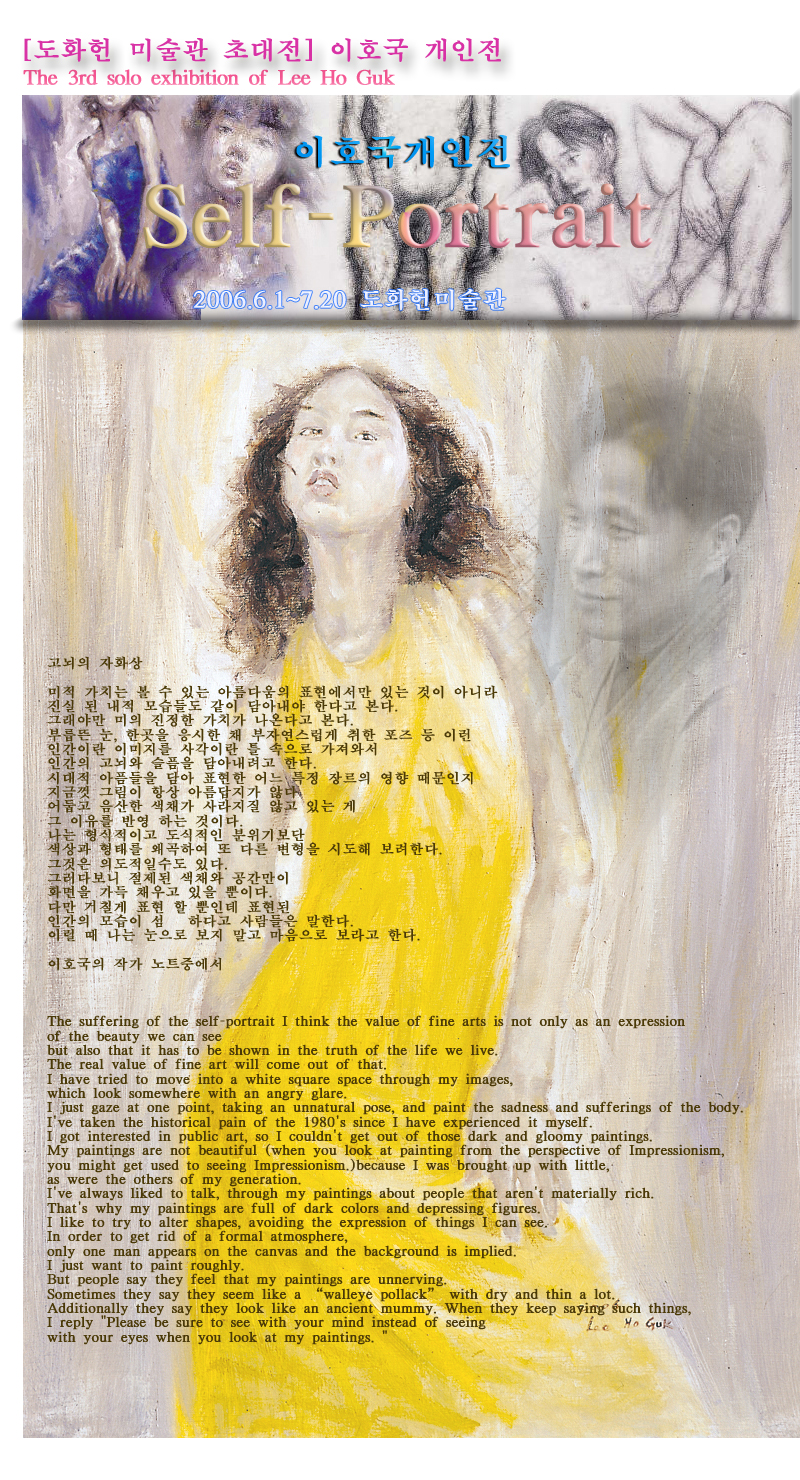 [도화헌 미술관 초대전] 이호국 개인전
The 3rd solo exhibition of Lee Ho Guk
이호국개인전
Self-Portrait
2006.6.1~7.20 도화헌미술관
고뇌의 자화상
미적 가치는 볼 수 있는 아름다움의 표현에서만 있는 것이 아니라
진실 된 내적 모습들도 같이 담아내야 한다고 본다.
그래야만 미의 진정한 가치가 나온다고 본다.
부릅뜬 눈, 한곳을 응시한 채 부자연스럽게 취한 포즈 등 이런
인간이란 이미지를 사각이란 틀 속으로 가져와서
인간의 고뇌와 슬픔을 담아내려고 한다.
시대적 아픔들을 담아 표현한 어느 특정 장르의 영향 때문인지
지금껏 그림이 항상 아름답지가 않다
어둡고 음산한 색채가 사라지질 않고 있는 게
그 이유를 반영 하는 것이다.
나는 형식적이고 도식적인 분위기보단
색상과 형태를 왜곡하여 또 다른 변형을 시도해 보려한다.
그것은 의도적일수도 있다.
그러다보니 절제된 색채와 공간만이
화면을 가득 채우고 있을 뿐이다.
다만 거칠게 표현 할 뿐인데 표현된
인간의 모습이 섬 하다고 사람들은 말한다.
이럴 때 나는 눈으로 보지 말고 마음으로 보라고 한다.
이호국의 작가 노트중에서
The suffering of the self-portrait I think the value of fine arts is not only as an expression
of the beauty we can see
but also that it has to be shown in the truth of the life we live.
The real value of fine art will come out of that.
I have tried to move into a white square space through my images,
which look somewhere with an angry glare.
I just gaze at one point, taking an unnatural pose, and paint the sadness and sufferings of the body.
I've taken the historical pain of the 1980's since I have experienced it myself.
I got interested in public art, so I couldn't get out of those dark and gloomy paintings.
My paintings are not beautiful (when you look at painting from the perspective of Impressionism,
you might get used to seeing Impressionism.)because I was brought up with little,
as were the others of my generation.
I've always liked to talk, through my paintings about people that aren't materially rich.
That's why my paintings are full of dark colors and depressing figures.
I like to try to alter shapes, avoiding the expression of things I can see.
In order to get rid of a formal atmosphere,
only one man appears on the canvas and the background is implied.
I just want to paint roughly.
But people say they feel that my paintings are unnerving.
Sometimes they say they seem like a “walleye pollack” with dry and thin a lot.
Additionally they say they look like an ancient mummy. When they keep saying such things,
I reply "Please be sure to see with your mind instead of seeing
with your eyes when you look at my paintings. "
Lee Ho Guk